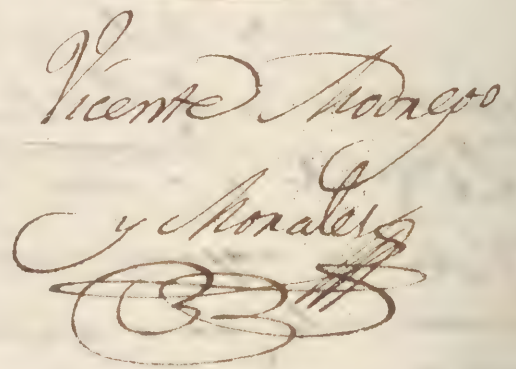 Vicente Modrego
y Morales